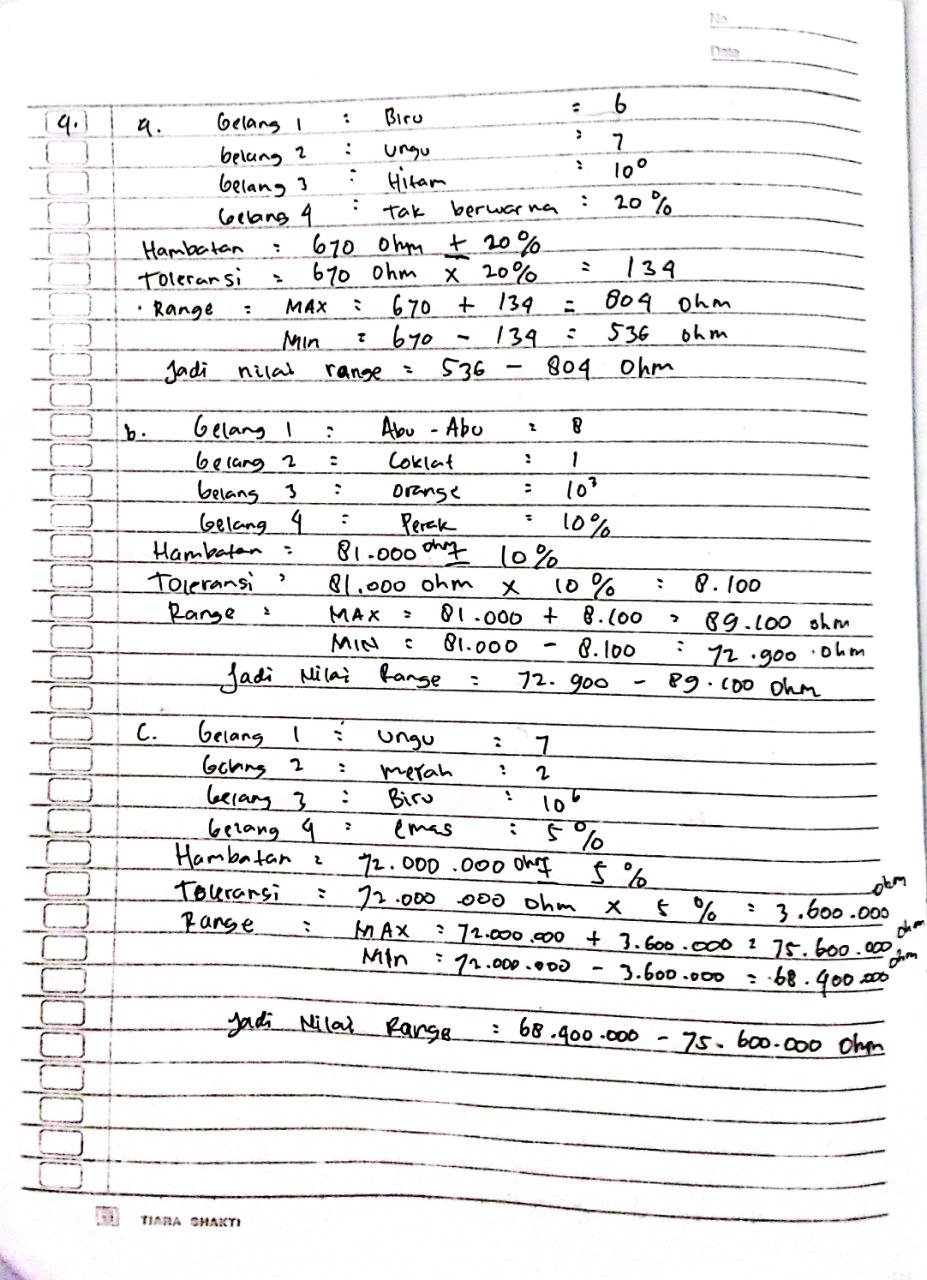 No
Date
4. a. Gelang 1 : Biru = 6
Gelang 2 : Ungu : 7
Gelang 3 : Hitam : 10⁰
Gelang 4 : Tak berwarna : 20 %
Hambatan : 670 Ohm ± 20%
Toleransi : 670 Ohm x 20% = 134
· Range : MAX : 670 + 134 = 804 Ohm
Min : 670 - 134 = 536 ohm
Jadi nilai range = 536 - 804 Ohm
b. Gelang 1 : Abu - Abu : 8
Gelang 2 : Coklat : 1
Gelang 3 : Orange : 10³
Gelang 4 : Perak : 10%
Hambatan : 81.000 ohm ± 10%
Toleransi : 81.000 ohm x 10% : 8.100
Range : MAX = 81.000 + 8.100 = 89.100 ohm
MIN : 81.000 - 8.100 : 72.900 ohm
Jadi Nilai Range = 72.900 - 89.100 Ohm
C. Gelang 1 : Ungu : 7
Gelang 2 : merah : 2
Gelang 3 : Biru : 10⁶
Gelang 4 : emas : 5%
Hambatan : 72.000.000 ohm ± 5%
Toleransi : 72.000.000 Ohm x 5% : 3.600.000 ohm
Range : MAX : 72.000.000 + 3.600.000 = 75.600.000 ohm
Min : 72.000.000 - 3.600.000 = 68.400.000 ohm
Jadi Nilai Range : 68.400.000 - 75.600.000 Ohm
TIARA SHAKTI